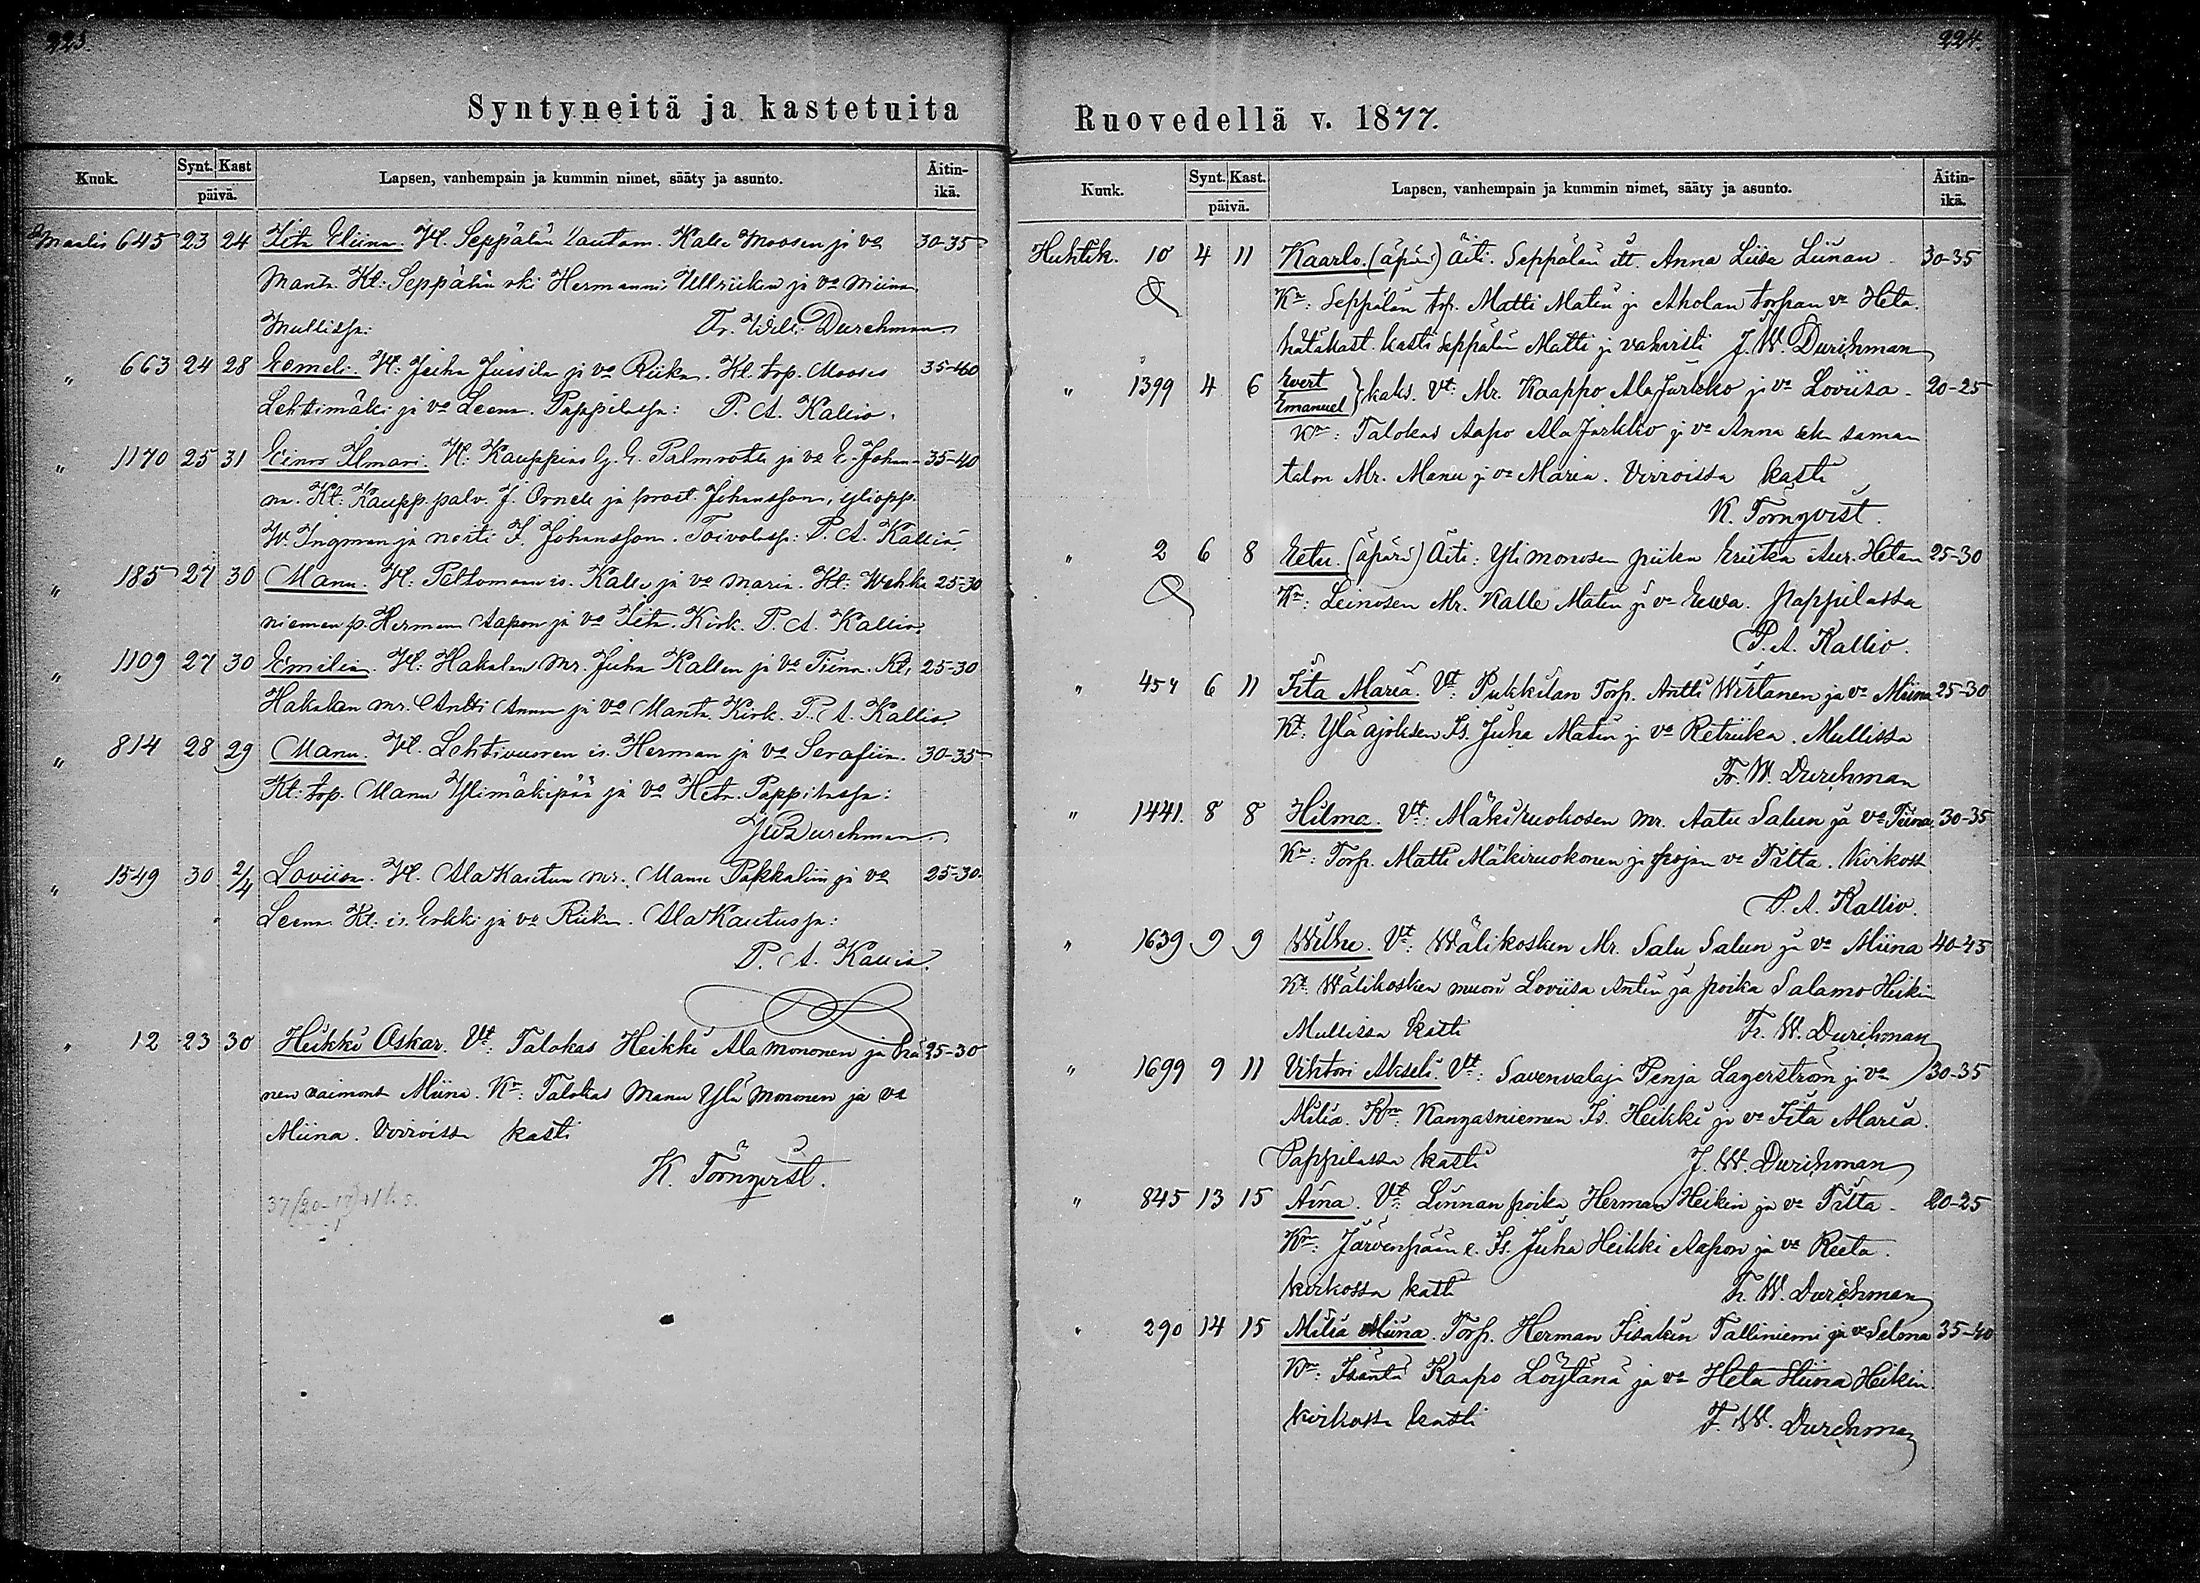 223.
Syntyneitä ja kastetuita
Kuuk.
Synt. Kast
päivä.
Lapsen, vanhempain ja kummin nimet, sääty ja asunto.
Äitin-
ikä.
Maalis 645 23 24 Fita Eliina. Vt. Seppälän Lautam. Kalle Moosen ja va 30-35
Manta. Kt: Seppälän Hermanni Ullriiken ja va Miina
Mullissa: Fr. Wilh. Durchman
" 663 24 28 Eemeli. Vt: Juha Juusila ja va Riika. Kt. torp. Mooses 35-40
Lehtimäki ja va Leena. Pappilassa: P. A. Kallio.
" 1170 25 31 Einar Ilmari. Vt: Kauppias G. Palmroth ja va E. Johan- 35-40
na. Kt: Kaupp. palv. J. Ornell ja Johansson, yliopp.
W. Ingman ja neiti F. Johansson. Toivolassa: P. A. Kallio.
" 185 27 30 Manu. Vt: Peltomaan is. Kalle ja va Maria. Kt: Wehka 25-30
niemen p. Herman Aapon ja va Fita. Kirk. P. A. Kallio.
" 1109 27 30 Emilia. Vt: Hakalan Mr. Juha Kallen ja va Tiina. Kt: 25-30
Hakalan mr. Antti ja va Manta. Kirk. P. A. Kallio.
" 814 28 29 Manu. Vt. Lehtivuoren is. Herman ja va Serafiin. 30-35
Kt: torp. Manu Ylimäkipää ja va Heta. Pappilassa:
FWDurchman.
" 1549 30 2/4 Loviisa. Vt. Ala Kautun mr. Manu ja va 25-30.
Leena. Kt: is. Erkki ja va Riika. Ala Kautussa:
P. A. Kallio.
" 12 23 30 Heikki Oskar. Vt: Talokas Heikki Ala Mononen ja hä- 25-30
nen vaimonsa Miina. Kn: Talokas Manu Yli Mononen ja va
Miina. Virroissa kasti
K. Törnqvist.
224.
Ruovedellä v. 1877.
Kuuk.
Synt. Kast.
päivä.
Lapsen, vanhempain ja kummin nimet, sääty ja asunto.
Äitin-
ikä.
Huhtik. 10 4 11 Kaarlo. (äpärä) Äiti. Seppälän itt. Anna Liisa Liinan 30-35
Kn: Seppälän trp. Matti Matin ja Aholan torpan va Heta.
hätäkast. kasti Seppälän Matti ja vahvisti F. W. Durchman
" 1399 4 6 Evert
Emanuel } kaks. Vt: Mr. Kaappo Ala Jurkko ja va Loviisa 20-25
Kn: Talokas Aapo Ala Jurkko ja va Anna sekä saman
talon Mr. Manu ja va Maria. Virroissa kasti
K. Törnqvist.
" 2 6 8 Eetu. (äpärä) Äiti: Yli Monosen piika Eriika Aur. Hetan 25-30
Kn: Leinosen Mr. Kalle Matin ja va Eewa. Pappilassa
P. A. Kallio.
" 454 6 11 Fita Maria. Vt: Pukkilan Torp. Antti Wirtanen ja va Miina 25-30
Kt: Ylä ajoksen Is. Juha Matin ja va Retriika. Mullissa
Fr. W. Durchman
" 1441. 8 8 Hilma. Vt: Mäkiruokosen Mr. Aatu Salun ja va Tiina 30-35
Kn: Torp. Matti Mäkiruokonen ja pojan va Tilta. Kirkoss
P. A. Kallio.
" 1639 9 9 Wilhe. Vt: Wälikosken Mr. Salu Salun ja va Miina 40-45
Kt. Wälikosken muori Loviisa Antin ja poika Salamo Heikin
Mullissa kasti Fr. W. Durchman
" 1699 9 11 Vihtori Akseli. Vt: Savenvalaja Penja Lagerström ja va 30-35
Milia. Kn: Kangasniemen Is. Heikki ja va Fita Maria.
Pappilassa kasti F. W. Durchman
" 845 13 15 Aina. Vt: Linnan poika Herman Heikin ja va Tilta. 20-25
Kn: Järvenpään e. Is. Juha Heikki Aapon ja va Reeta.
Kirkossa kasti Fr. W. Durchman
" 290 14 15 Milia Miina. Torp. Herman Iisakin Talliniemi ja va Selma 35-40
Kn: Isäntä Kaapo Löytänä ja va Heta Miina Heikin
Kirkossa kasti F. W. Durchman